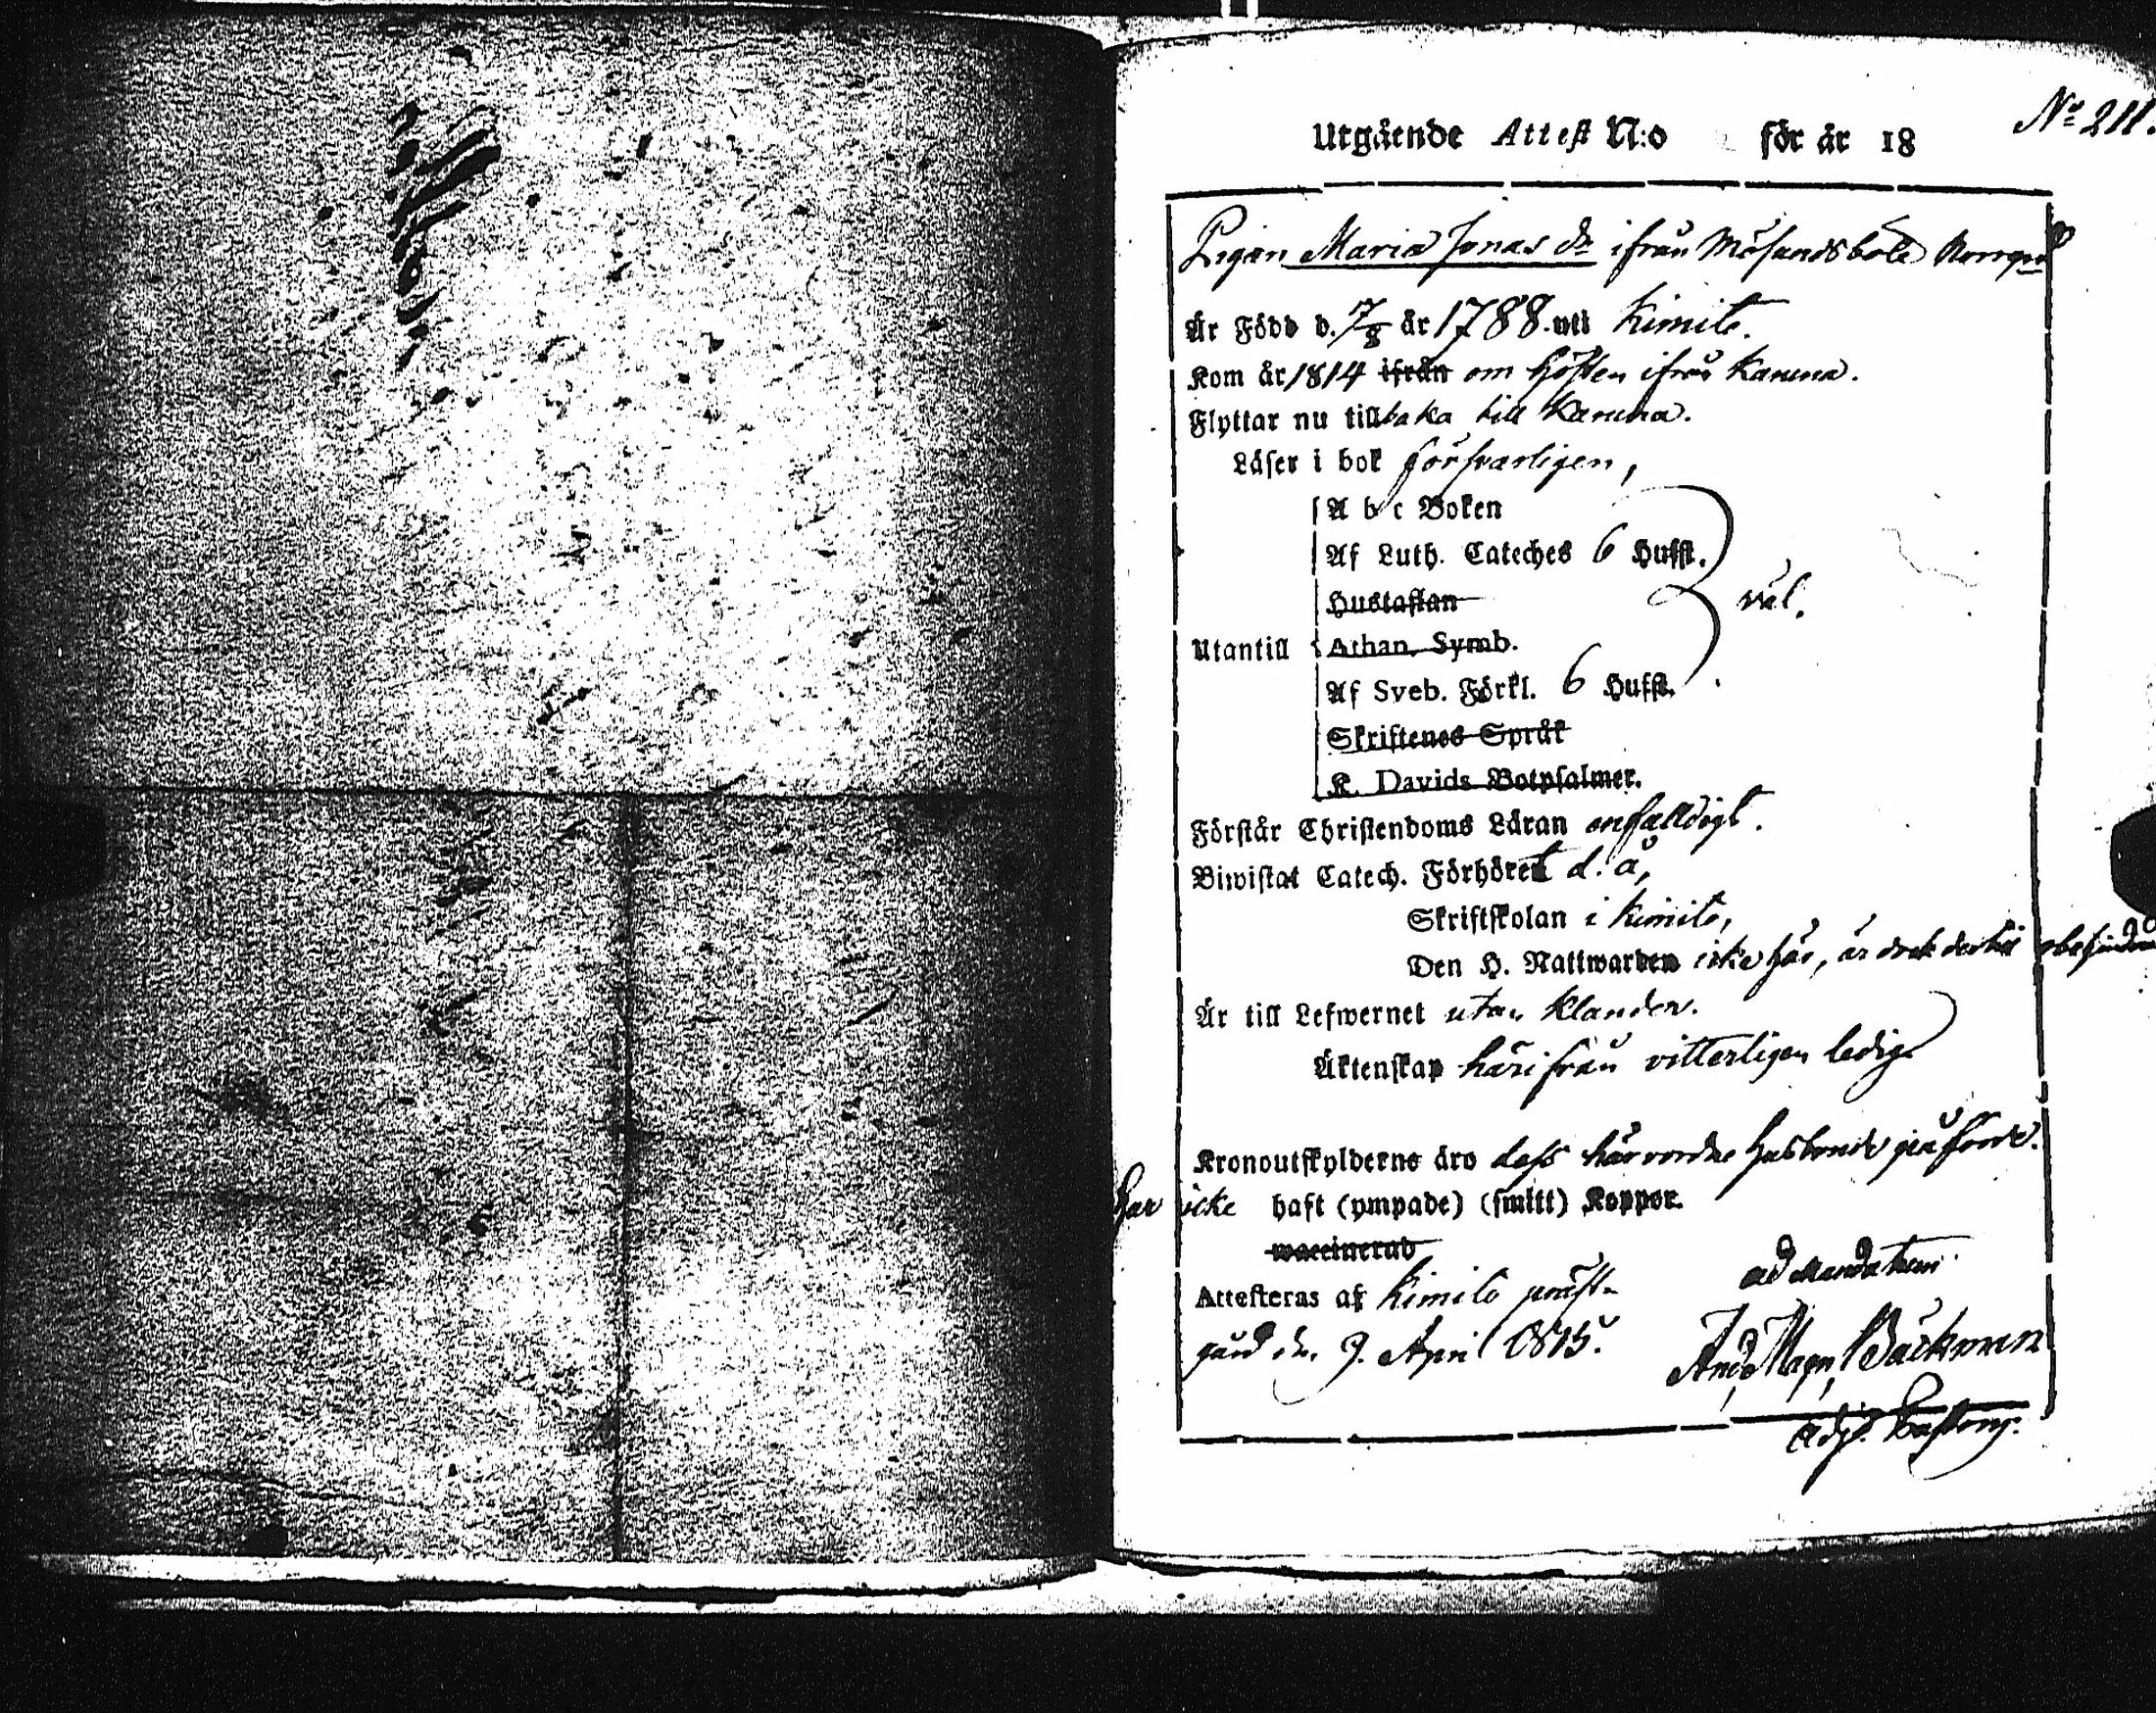 No 211.
Utgående Attest N:o för år 18
Pigan Maria Jonas dr ifrån Mösandsböle
Är Född d. 7/8 år 1788. uti Kimito.
Kom år 1814 ifrån om hösten ifrån Karuna.
Flyttar nu tillbaka till Karuna.
Läser i bok försvarligen,
A b c Boken
Af Luth. Cateches 6 Hufst.
Hustaflan väl.
Utantill Athan. Symb.
Af Sveb. Förkl. 6 Hufst.
Skriftenes Språk
K. Davids Botpsalmer.
Förstår Christendoms Läran enfalldigt.
Biwistat Catech. Förhöret d. å,
Skriftskolan i Kimito,
Den H. Nattwarden icke här, är dock dertill
Är till Lefwernet utan klander.
Äktenskap härifrån vitterligen ledig
Kronoutskylderne äro dess härvarande husbonde
har icke haft (ympade) (smitt) Koppor.
waccinerad
ad Mandatum
Attesteras af Kimito präst-
gård d. 9. April 1815.
And. Magn. Bäckman
Adj. Past.